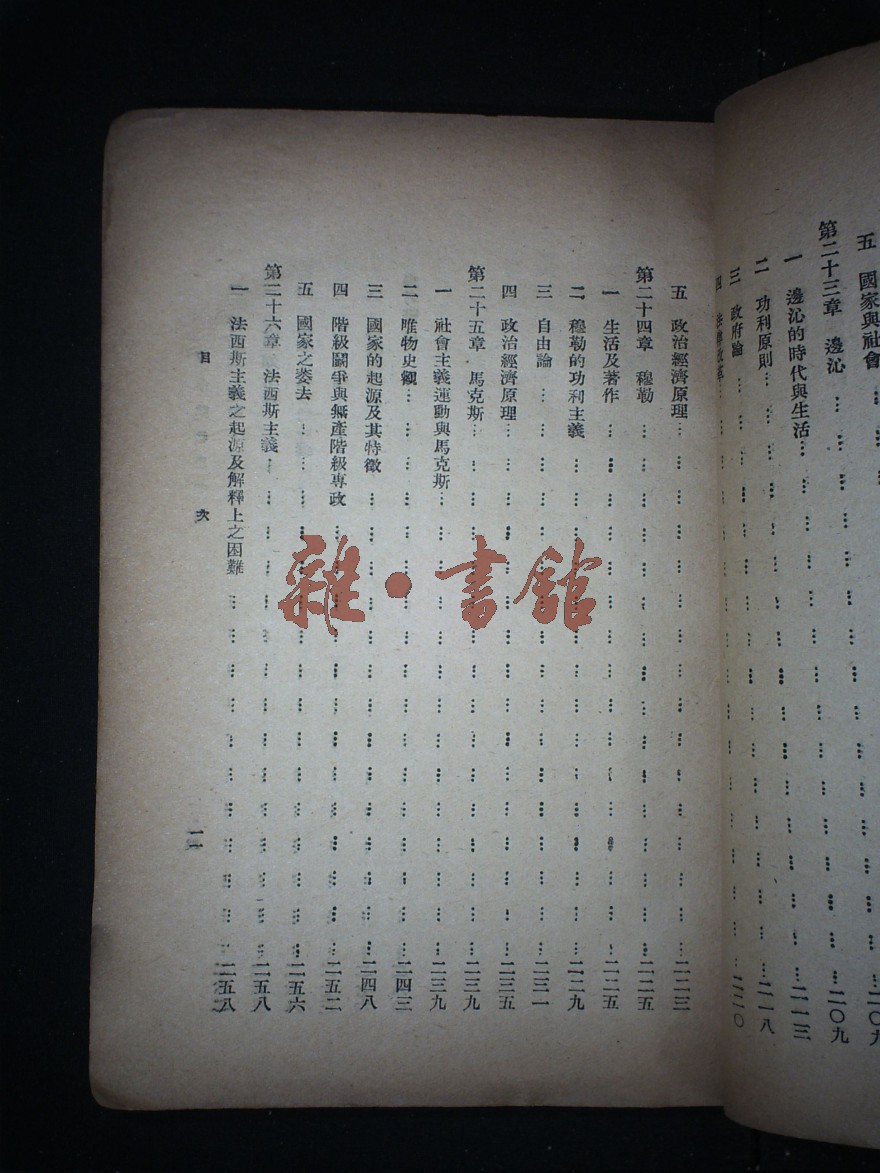 五 國家與社會 … … … 二〇九
第二十三章 邊沁 … … … 二〇九
一 邊沁的時代與生活 … … … 二一三
二 功利原則 … … … 二一八
三 政府論 … … … 二二〇
四 法律改革 … … …
五 政治經濟原理 … … … 二二三
第二十四章 穆勒 … … … 二二五
一 生活及著作 … … … 二二五
二 穆勒的功利主義 … … … 二二九
三 自由論 … … … 二三一
四 政治經濟原理 … … … 二三五
第二十五章 馬克斯 … … … 二三九
一 社會主義運動與馬克斯 … … … 二三九
二 唯物史觀 … … … 二四三
三 國家的起源及其特徵 … … … 二四八
四 階級鬭爭與無產階級專政 … … … 二五二
五 國家之萎去 … … … 二五六
第二十六章 法西斯主義 … … … 二五八
一 法西斯主義之起源及解釋上之困難 … … … 二五八
目 次
一一
雜·書館